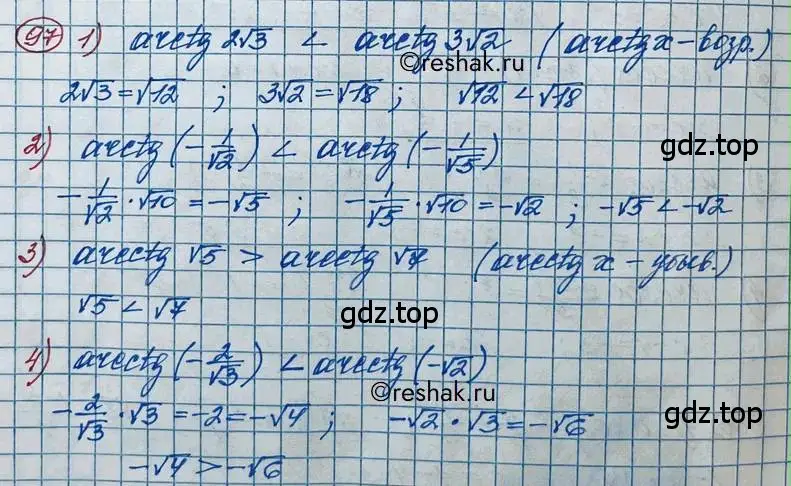 97 1) arctg 2√3 < arctg 3√2 (arctg x – возр.)
©reshak.ru
2√3 = √12 ; 3√2 = √18 ; √12 < √18
2) arctg (-1/√2) < arctg (-1/√5)
gdz.top
-1/√2 · √10 = -√5 ; -1/√5 · √10 = -√2 ; -√5 < -√2
3) arcctg √5 > arcctg √7 (arcctg x – убыв.)
√5 < √7
gdz.top
4) arcctg (-2/√3) < arcctg (-√2)
©reshak.ru
-2/√3 · √3 = -2 = -√4 ; -√2 · √3 = -√6
gdz.top
-√4 > -√6